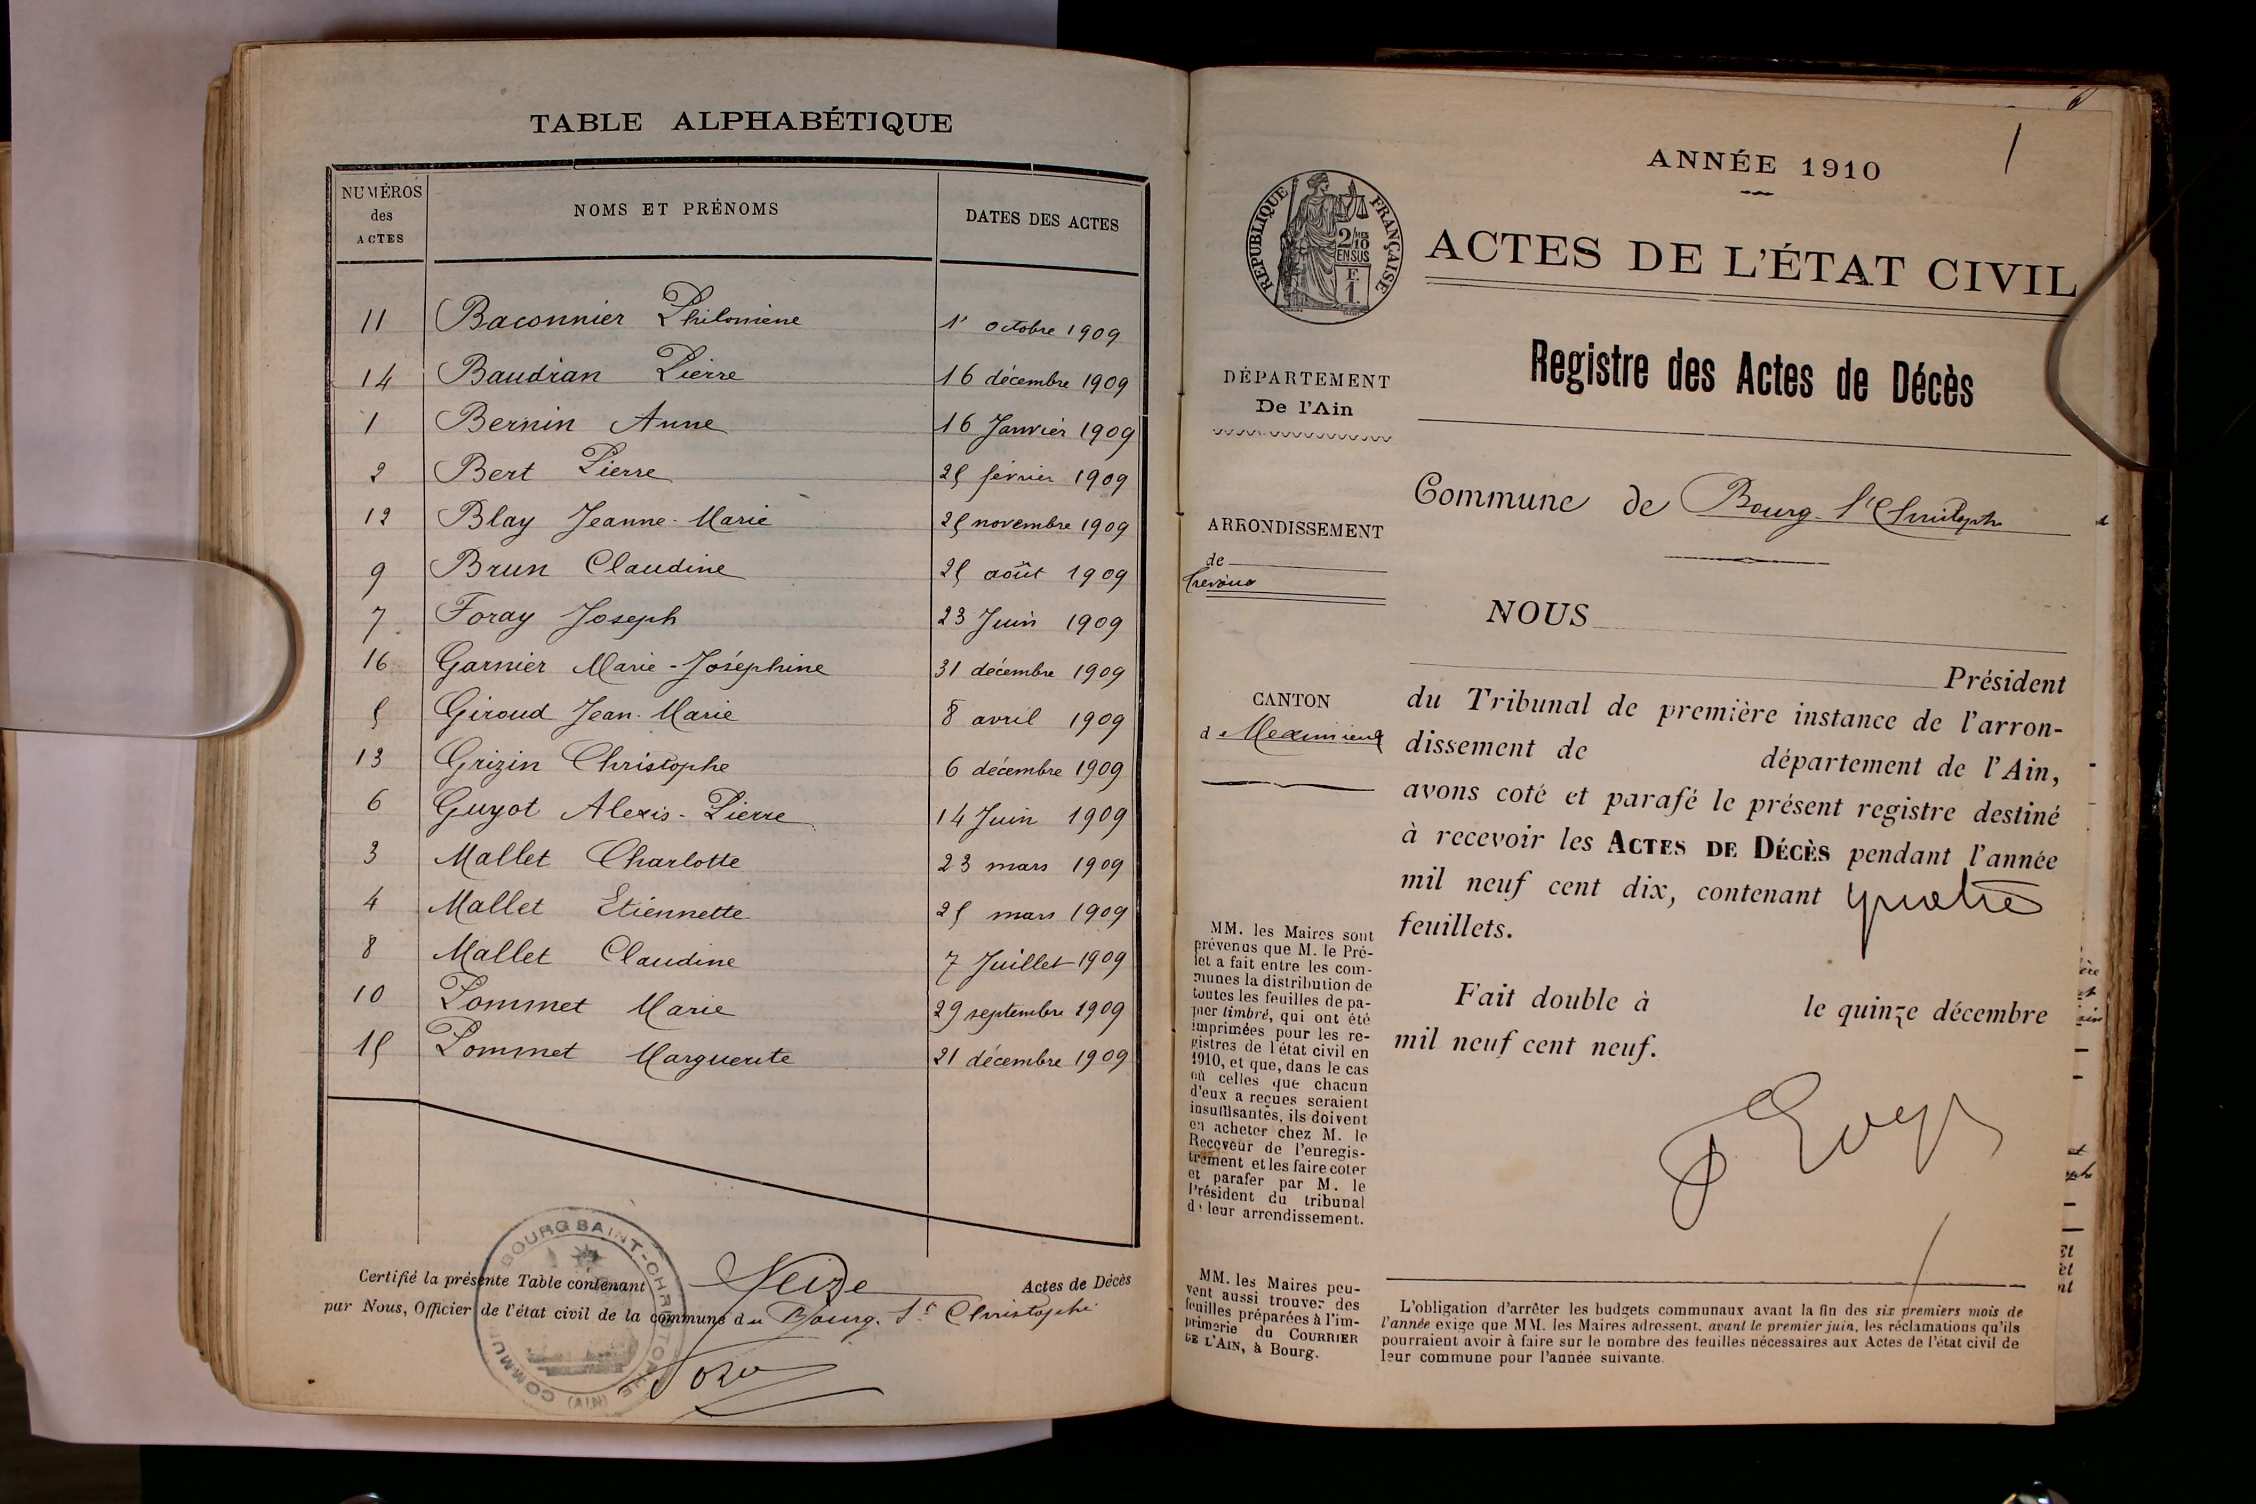 TABLE ALPHABÉTIQUE
NUMÉROS des ACTES
NOMS ET PRÉNOMS
DATES DES ACTES
11 Baconnier Philomène 1er octobre 1909
14 Baudran Pierre 16 décembre 1909
1 Bernin Anne 16 Janvier 1909
2 Bert Pierre 25 février 1909
12 Blay Jeanne-Marie 25 novembre 1909
9 Brun Claudine 25 août 1909
7 Foray Joseph 23 Juin 1909
16 Garnier Marie-Joséphine 31 décembre 1909
5 Giroud Jean-Marie 8 avril 1909
13 Grizin Christophe 6 décembre 1909
6 Guyot Alexis-Pierre 14 Juin 1909
3 Mallet Charlotte 23 mars 1909
4 Mallet Etiennette 25 mars 1909
8 Mallet Claudine 7 Juillet 1909
10 Pommet Marie 29 septembre 1909
15 Pommet Marguerite 21 décembre 1909
Certifié la présente Table contenant Seize Actes de Décès
par Nous, Officier de l'état civil de la commune du Bourg-St Christophe
COMMUNE BOURG SAINT-CHRISTOPHE (AIN)
1
ANNÉE 1910
RÉPUBLIQUE FRANÇAISE
2/10
EN SUS
F
1
ACTES DE L'ÉTAT CIVIL
Registre des Actes de Décès
DÉPARTEMENT
De l'Ain
Commune de Bourg-St Christophe
ARRONDISSEMENT
de
Trévoux
NOUS
Président
CANTON
de Meximieux
du Tribunal de première instance de l'arron-
dissement de département de l'Ain,
avons coté et parafé le présent registre destiné
à recevoir les ACTES DE DÉCÈS pendant l'année
mil neuf cent dix, contenant quatre
feuillets.
Fait double à le quinze décembre
mil neuf cent neuf.
MM. les Maires sont
prévenus que M. le Pré-
fet a fait entre les com-
munes la distribution de
toutes les feuilles de pa-
pier timbré, qui ont été
imprimées pour les re-
gistres de l'état civil en
1910, et que, dans le cas
où celles que chacun
d'eux a reçues seraient
insuffisantes, ils doivent
en acheter chez M. le
Receveur de l'enregis-
trement et les faire coter
et parafer par M. le
Président du tribunal
de leur arrondissement.
MM. les Maires peu-
vent aussi trouver des
feuilles préparées à l'im-
primerie du COURRIER
DE L'AIN, à Bourg.
L'obligation d'arrêter les budgets communaux avant la fin des six premiers mois de
l'année exige que MM. les Maires adressent, avant le premier juin, les réclamations qu'ils
pourraient avoir à faire sur le nombre des feuilles nécessaires aux Actes de l'état civil de
leur commune pour l'année suivante.